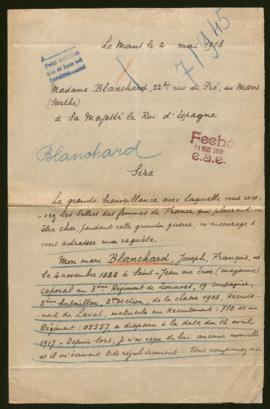 Le Mans le 2 mai 1918
71945
Madame Blanchard, 52 ter rue du Pré, au Mans
(Sarthe)
à Sa Majesté le Roi d'Espagne
Fecho
MAI 1918
e.a.e.
Blanchard
Sire
La grande bienveillance avec laquelle vous rece-
vez les lettres des femmes de France qui pleurent un
être cher, pendant cette grande guerre, m'encourage à
vous adresser ma requête.
Mon mari Blanchard, Joseph, François, né
le 4 novembre 1888 à Saint-Jean sur Erve (mayenne)
caporal au 3ème Régiment de Zouaves, 19e compagnie,
5ème bataillon, 2e section, de la classe 1908, Recrute-
ment de Laval, matricule au Recrutement: 710 et au
Régiment: 05557 a disparu à la date du 16 avril
1917. Depuis lors, je n'ai reçu de lui aucune nouvelle
et il m'écrivait très régulièrement. Vous comprenez ma